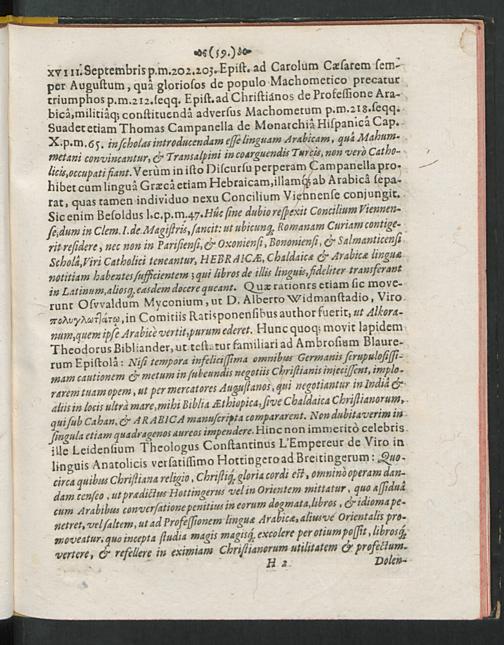 (59.)
XVIII. Septembris p.m.202.203. Epist. ad Carolum Cæsarem sem-
per Augustum, quâ gloriosos de populo Machometico precatur
triumphos p.m.212.seqq. Epist. ad Christiános de Professione Ara-
bicâ, militiâq; constituendâ adversus Machometum p.m.218.seqq.
Suadet etiam Thomas Campanella de Monarchiâ Hispanicâ Cap.
X.p.m.65. in scholas introducendam esse linguam Arabicam, quâ Mahum-
metani convincantur, & Transalpini in coarguendis Turcis, non verò Catho-
licis, occupati fiant. Verùm in isto Discursu perperam Campanella pro-
hibet cum linguâ Græcâ etiam Hebraicam, illamq; ab Arabicâ sepa-
rat, quas tamen individuo nexu Concilium Viennense conjungit.
Sic enim Besoldus l.c.p.m.47. Húc sine dubio respexit Concilium Viennen-
se, dum in Clem. I. de Magistris, sancit: ut ubicunq; Romanam Curiam contige-
rit residere, nec non in Parisiensi, & Oxoniensi, Bononiensi, & Salmanticensi
Scholâ, Viri Catholici teneantur, HEBRAICÆ, Chaldaicæ & Arabicæ linguæ
notitiam habentes sufficientem; qui libros de illis linguis, fideliter transferant
in Latinum, aliosq; easdem docere queant. Quæ rationes etiam sic move-
runt Osvvaldum Myconium, ut D. Alberto Widmanstadio, Viro
πολυγλωττάτῳ, in Comitiis Ratisponensibus author fuerit, ut Alkora-
num, quem ipse Arabicè vertit, purum ederet. Hunc quoq; movit lapidem
Theodorus Bibliander, ut testatur familiari ad Ambrosium Blaure-
rum Epistolâ: Nisi tempora infelicissima omnibus Germanis scrupulosissi-
mam cautionem & metum in subeundis negotiis Christianis injecissent, implo-
rarem tuam opem, ut per mercatores Augustanos, qui negotiantur in Indiâ &
aliis in locis ultrà mare, mihi Biblia Æthiopica, sive Chaldaica Christianorum,
qui sub Cahan, & ARABICA manuscripta compararent. Non dubitaverim in
singula etiam quadragenos aureos impendere. Hinc non immeritò celebris
ille Leidensium Theologus Constantinus L'Empereur de Viro in
linguis Anatolicis versatissimo Hottingero ad Breitingerum: Quo-
circa quibus Christiana religio, Christiq; gloria cordi est, omninò operam dan-
dam censeo, ut prædictus Hottingerus vel in Orientem mittatur, quo assiduâ
cum Arabibus conversatione penitius in eorum dogmata, libros, & idioma pe-
netret, vel saltem, ut ad Professionem linguæ Arabicæ, aliusvè Orientalis pro-
moveatur, quo incepta studia magis magisq; excolere per otium possit, librosq;
vertere, & refellere in eximiam Christianorum utilitatem & profectum.
H 2 Dolen-